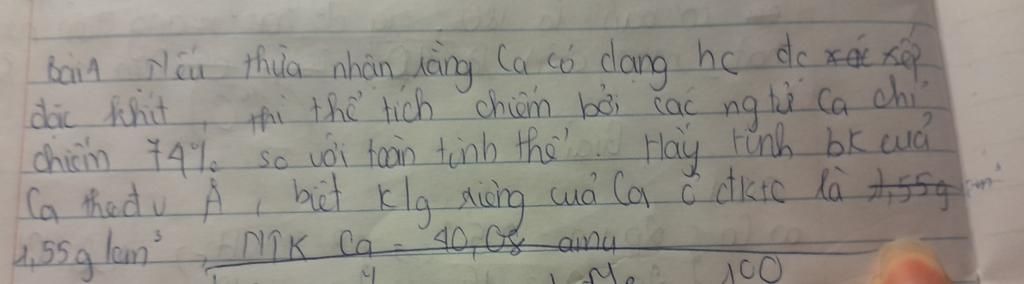 Bài 1 Nếu thừa nhận rằng Ca có dạng hc dc xác xếp
đặc khít, thì thể tích chiếm bởi các ng tử Ca chỉ
chiếm 74% so với toàn tinh thể. Hãy tính bk của
Ca theo đv Å, biết klg riêng của Ca ở đktc là 1,55g /cm³
1,55g/cm³, NTK Ca = 40,08 amu
100